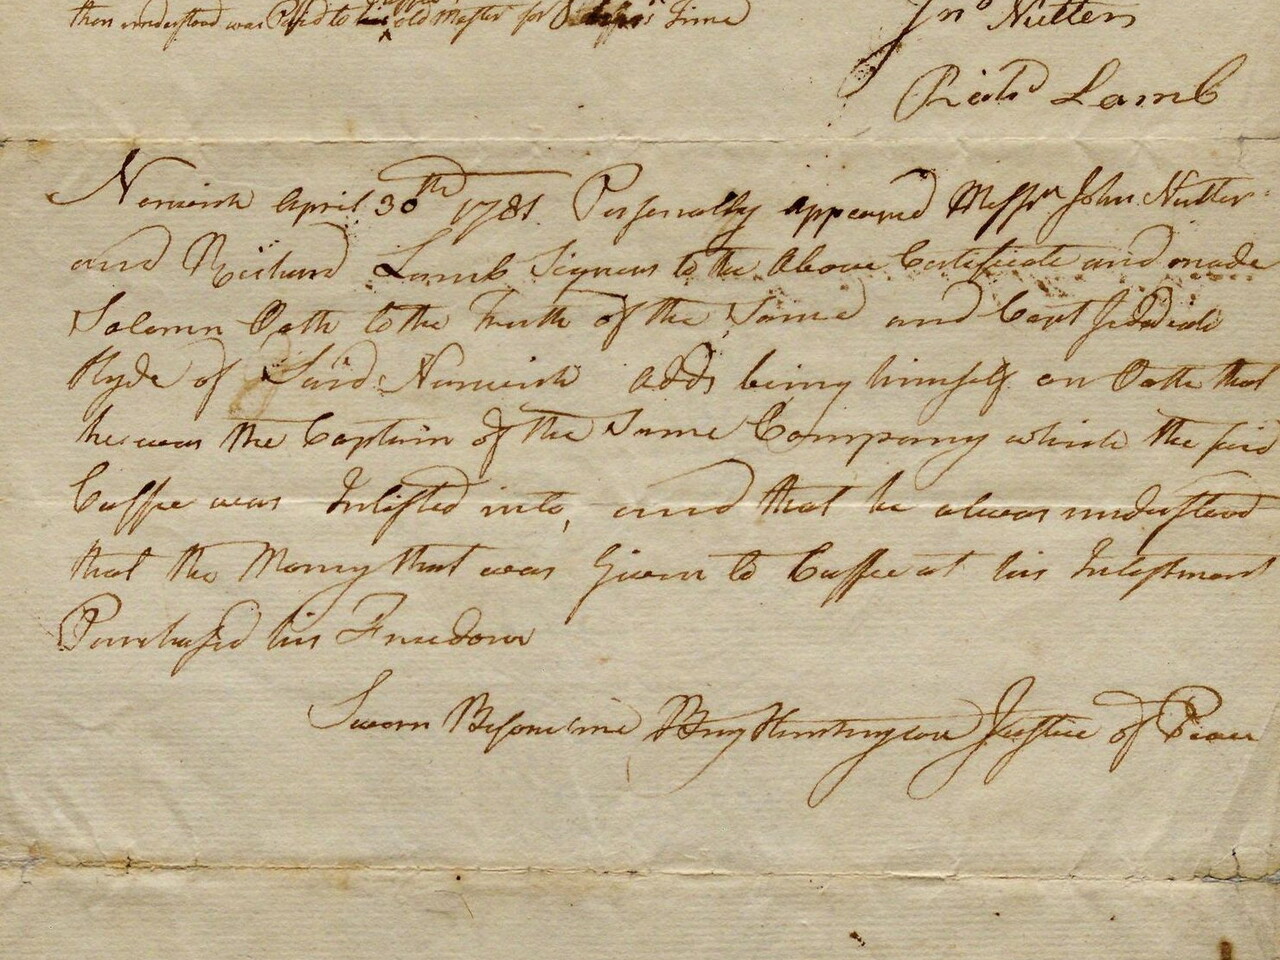 then understood was Paid to his old Master for Time
Jnº Nutter
Richd Lamb
Norwich April 30th 1781 Personally appeared Messrs John Nutter
and Richard Lamb Signers to the Above Certificate and made
Solemn Oath to the Truth of the Same and Capt Jedidiah
Hyde of Said Norwich adds being himself on Oath that
he was the Captain of the Same Company which the said
Cuffee was Inlisted into, and that he always understood
that the Money that was Given to Cuffee at his Inlistment
Purchased his Freedom
Sworn Before me Benj Huntington Justice of Peace